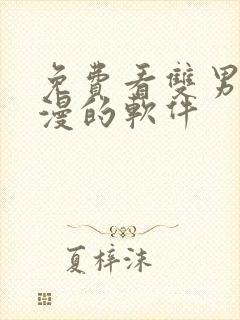 免費看雙男
漫的軟件
夏梓沫